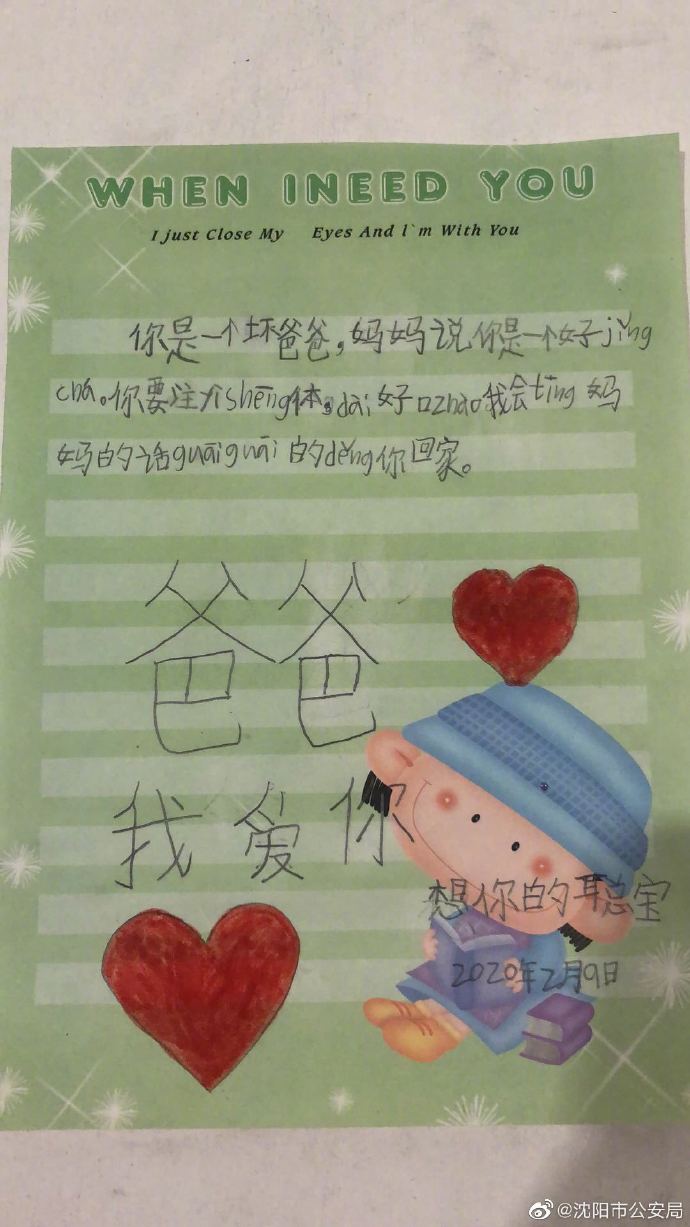 WHEN INEED YOU
I just Close My Eyes And l`m With You
你是一个坏爸爸，妈妈说你是一个好jǐng
chá。你要注介shēng体。dài好口zhào我会tīng妈
妈的话guāiguāi的děng你回家。
爸爸
我爱你
想你的聪宝
2020年2月9日
@沈阳市公安局